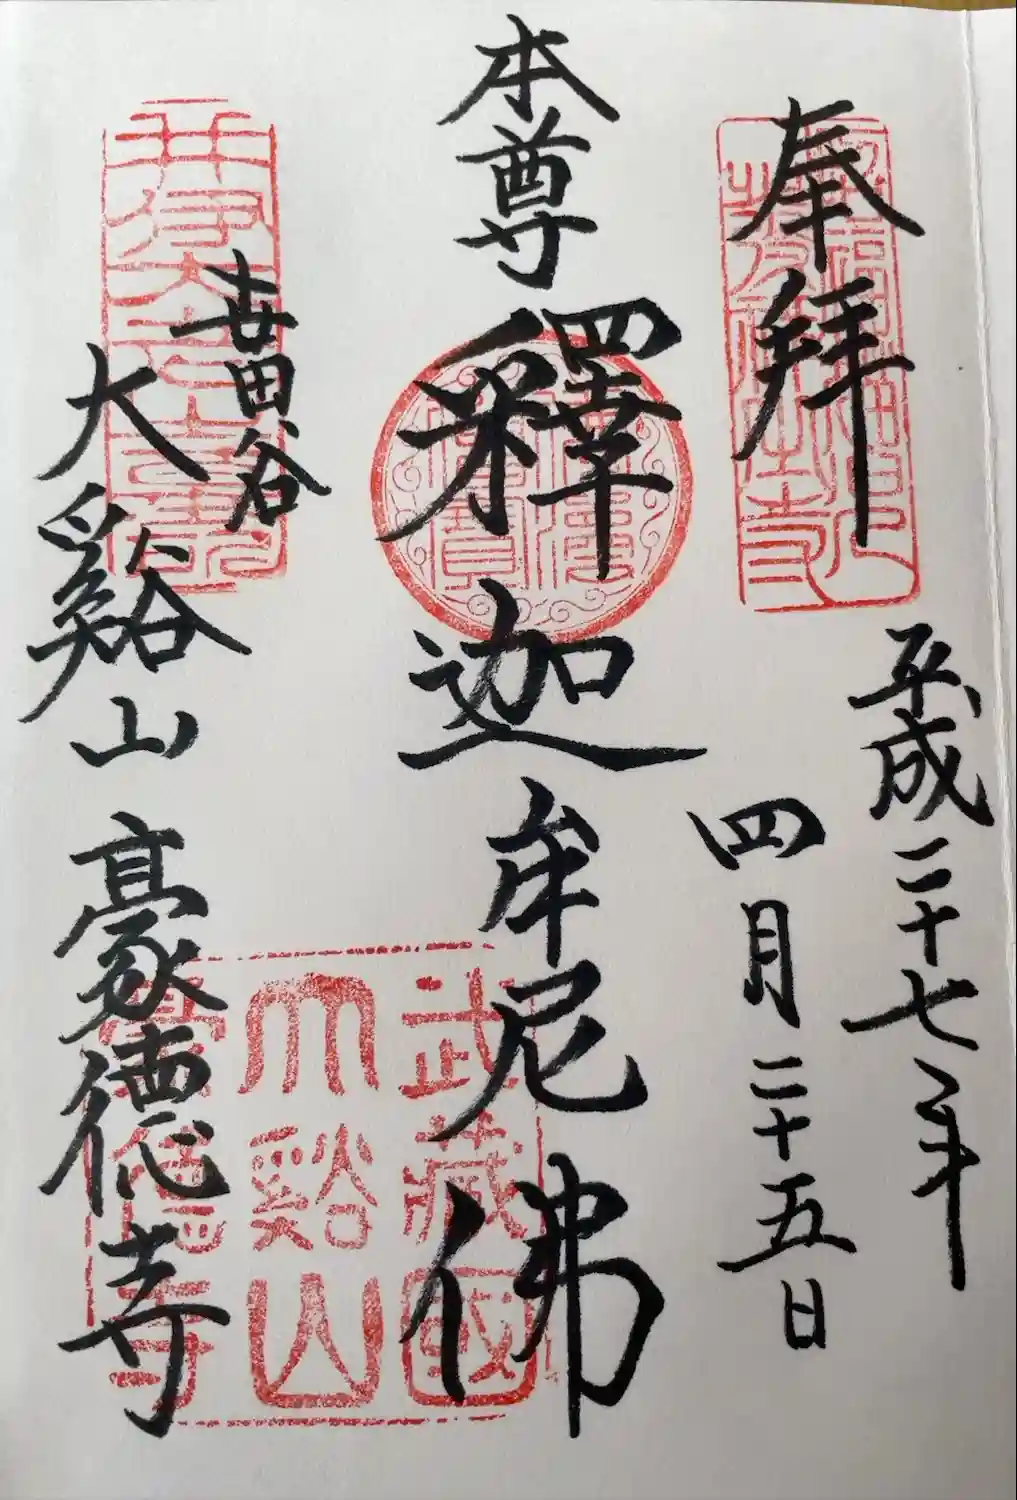 奉拝
平成二十七年
四月二十五日
本尊
釋迦牟尼佛
世田谷
大谿山
豪徳寺
武藏國
大谿山
豪徳寺